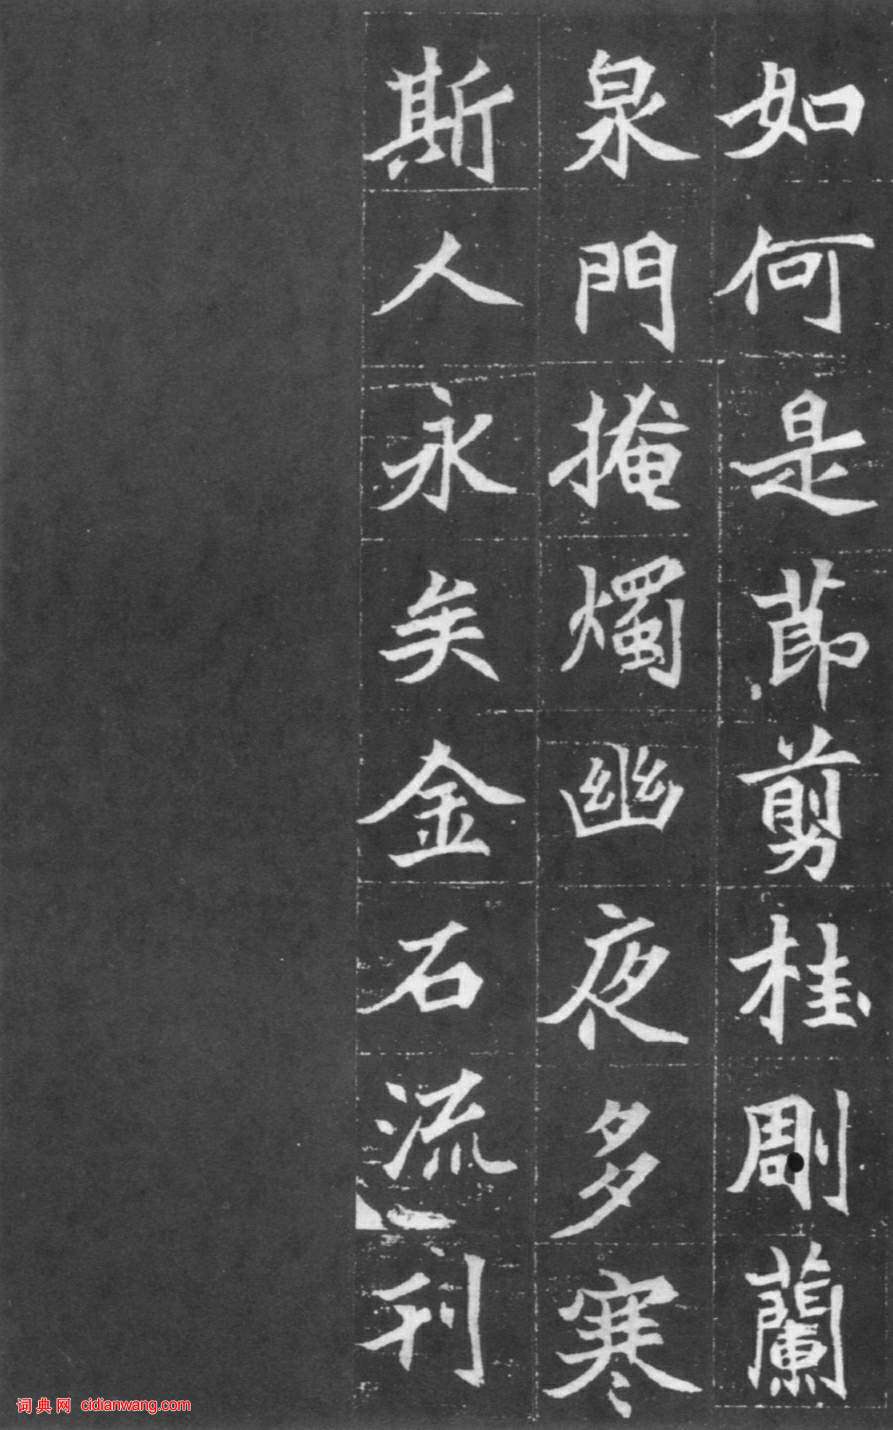 如何是莭剪桂刷蘭
泉門掩燭幽夜多寒
斯人永矣金石流刊
词典网 cidianwang.com